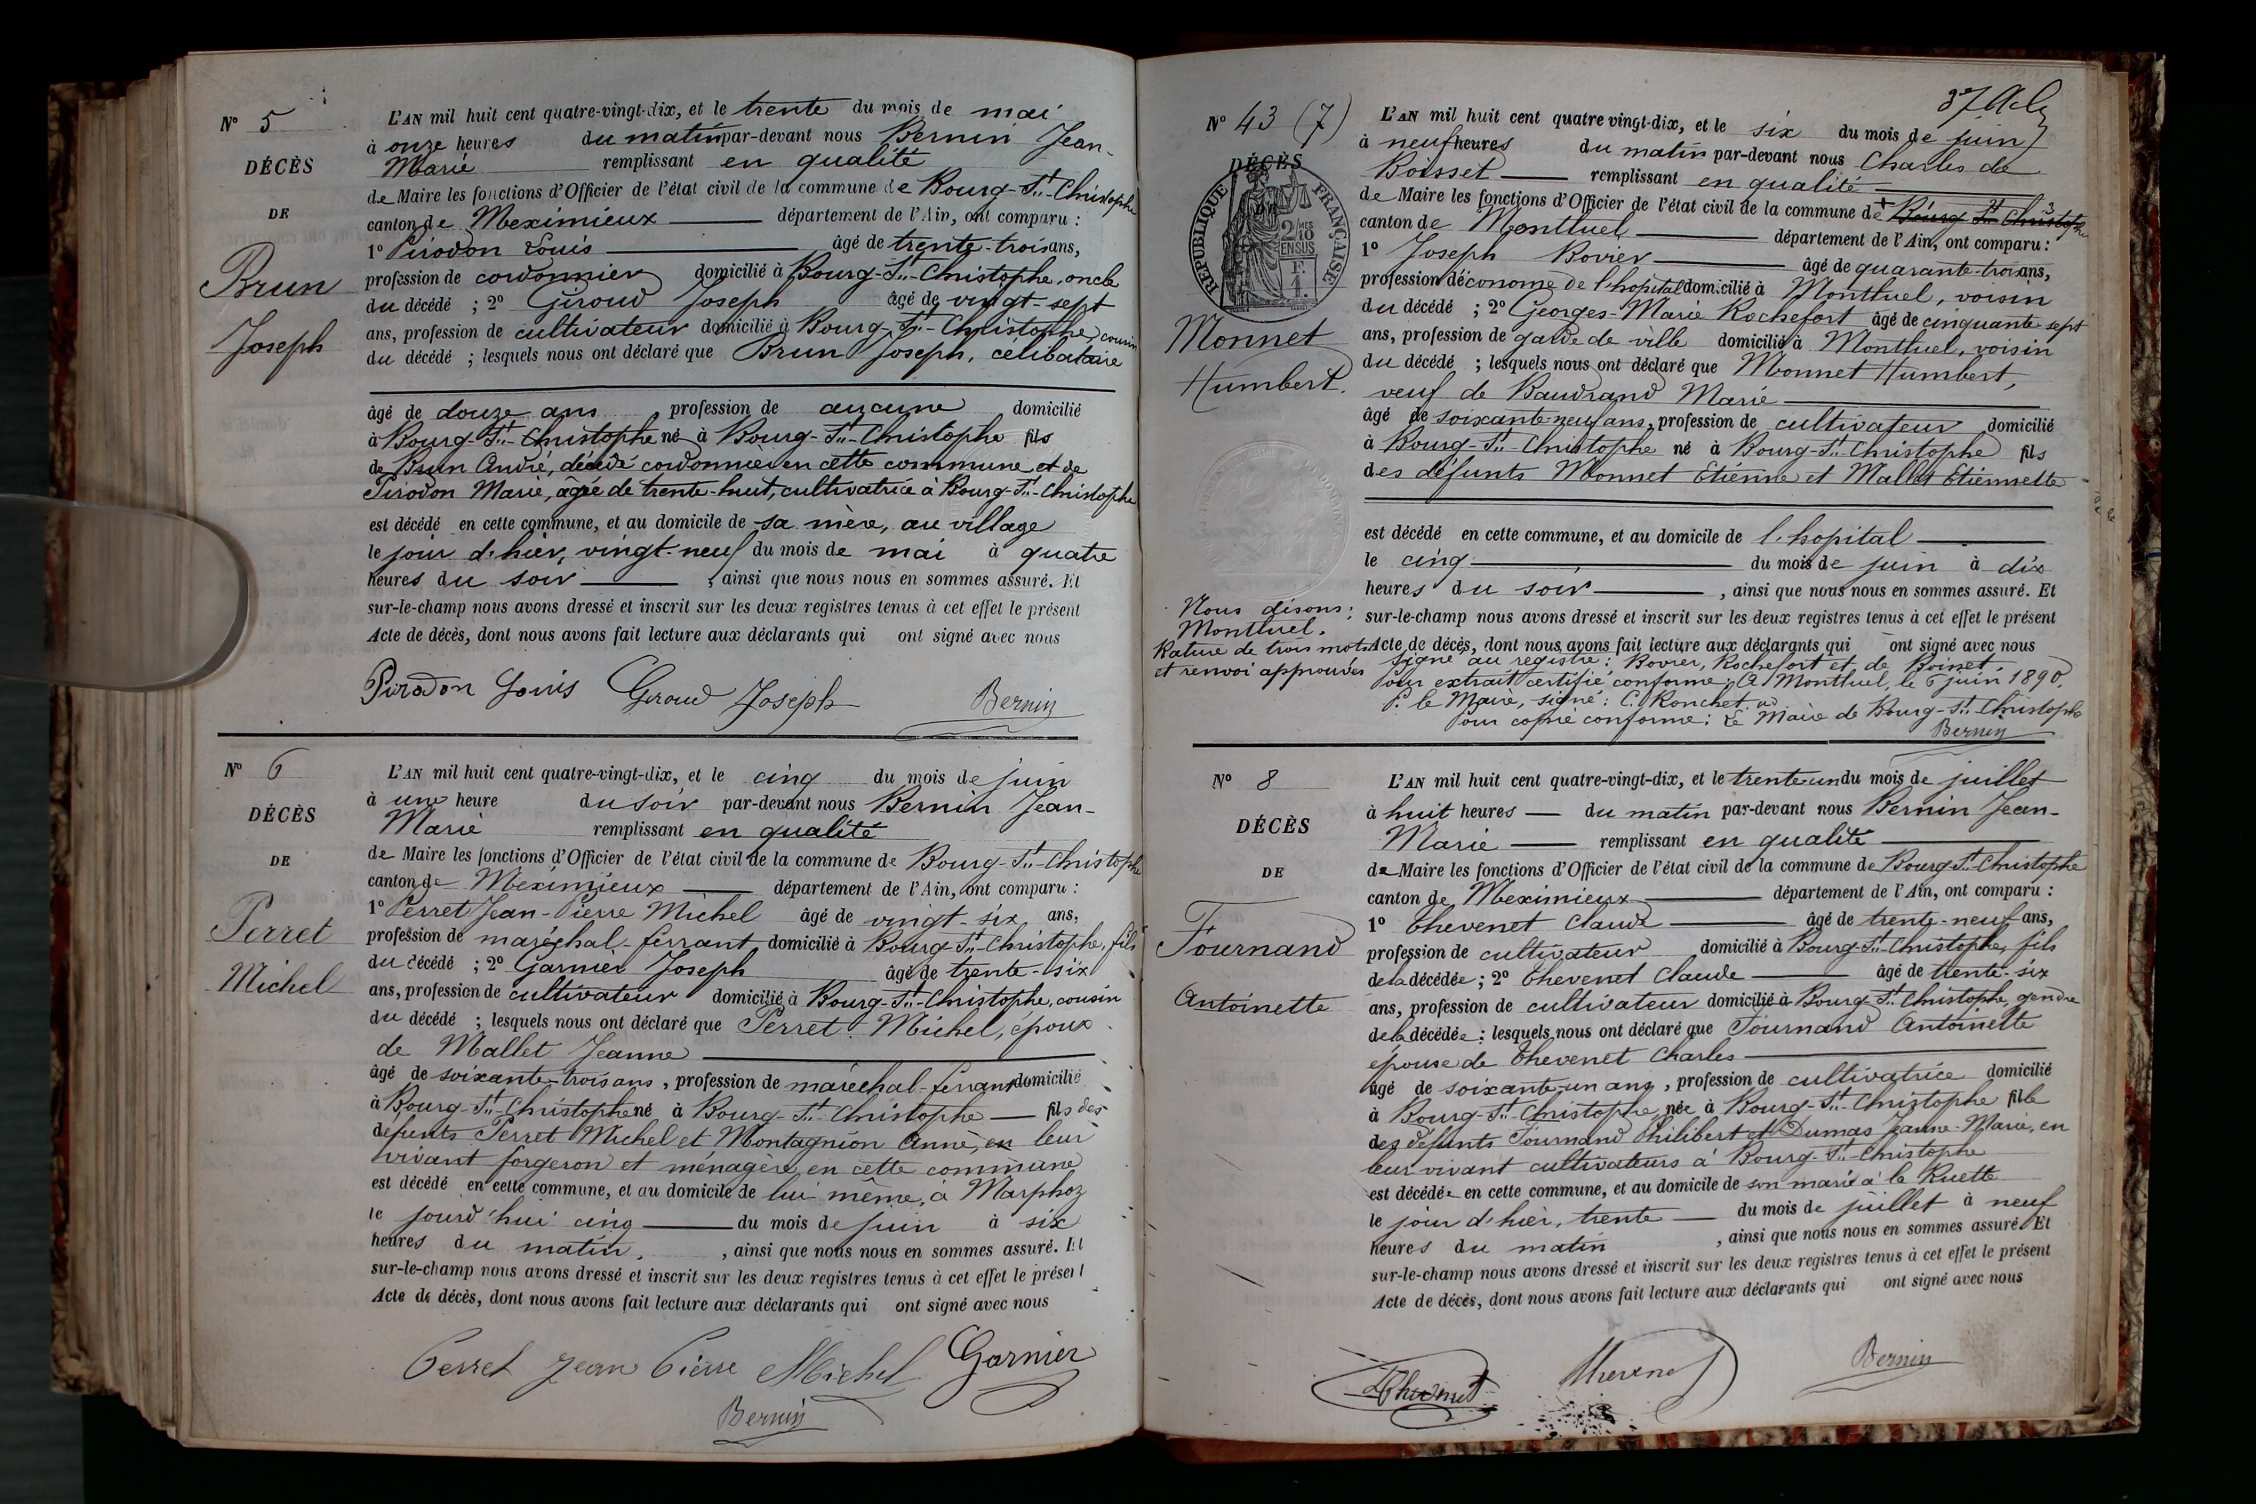 N° 5
DÉCÈS
DE
Brun
Joseph
L'AN mil huit cent quatre-vingt-dix, et le trente du mois de mai
à onze heures du matin par-devant nous Bernin Jean-
Marie remplissant en qualité
de Maire les fonctions d'Officier de l'état civil de la commune de Bourg-St-Christophe
canton de Meximieux département de l'Ain, ont comparu :
1° Pirodon Louis âgé de trente-trois ans,
profession de cordonnier domicilié à Bourg-St-Christophe, oncle
du décédé ; 2° Giroud Joseph âgé de vingt-sept
ans, profession de cultivateur domicilié à Bourg-St-Christophe, cousin
du décédé ; lesquels nous ont déclaré que Brun Joseph, célibataire
âgé de douze ans profession de aucune domicilié
à Bourg-St-Christophe né à Bourg-St-Christophe fils
de Brun André, décédé cordonnier en cette commune et de
Pirodon Marie, âgée de trente-huit, cultivatrice à Bourg-St-Christophe
est décédé en cette commune, et au domicile de sa mère, au village
le jour d'hier, vingt-neuf du mois de mai à quatre
heures du soir , ainsi que nous nous en sommes assuré. Et
sur-le-champ nous avons dressé et inscrit sur les deux registres tenus à cet effet le présent
Acte de décès, dont nous avons fait lecture aux déclarants qui ont signé avec nous
Pirodon Louis Giroud Joseph Bernin
N° 6
DÉCÈS
DE
Perret
Michel
L'AN mil huit cent quatre-vingt-dix, et le cinq du mois de juin
à une heure du soir par-devant nous Bernin Jean-
Marie remplissant en qualité
de Maire les fonctions d'Officier de l'état civil de la commune de Bourg-St-Christophe
canton de Meximieux département de l'Ain, ont comparu :
1° Perret Jean-Pierre Michel âgé de vingt-six ans,
profession de maréchal-ferrant domicilié à Bourg-St-Christophe, fils
du décédé ; 2° Garnier Joseph âgé de trente-six
ans, profession de cultivateur domicilié à Bourg-St-Christophe, cousin
du décédé ; lesquels nous ont déclaré que Perret Michel, époux
de Mallet Jeanne
âgé de soixante-trois ans, profession de maréchal-ferrant domicilié
à Bourg-St-Christophe né à Bourg-St-Christophe fils des
défunts Perret Michel et Montagnion Anne, en leur
vivant forgeron et ménagère en cette commune
est décédé en cette commune, et au domicile de lui-même, à Marphoz
le jourd'hui cinq du mois de juin à six
heures du matin, , ainsi que nous nous en sommes assuré. Et
sur-le-champ nous avons dressé et inscrit sur les deux registres tenus à cet effet le présent
Acte de décès, dont nous avons fait lecture aux déclarants qui ont signé avec nous
Perret Jean Pierre Michel Garnier
Bernin
37
N° 43 (7)
DÉCÈS
RÉPUBLIQUE FRANÇAISE
2/10 EN SUS
Monnet
Humbert.
Nous disons :
Montluel.
Rature de trois mots
et renvoi approuvés
L'AN mil huit cent quatre vingt-dix, et le six du mois de juin
à neuf heures du matin par-devant nous Charles de
Boisset remplissant en qualité
de Maire les fonctions d'Officier de l'état civil de la commune de Bourg St Christophe
canton de Montluel département de l'Ain, ont comparu :
1° Joseph Rovier âgé de quarante-trois ans,
profession d'économe de l'hôpital domicilié à Montluel, voisin
du décédé ; 2° Georges-Marie Rochefort âgé de cinquante sept
ans, profession de garde de ville domicilié à Montluel, voisin
du décédé ; lesquels nous ont déclaré que Monnet Humbert,
veuf de Baudrand Marie
âgé de soixante-neuf ans, profession de cultivateur domicilié
à Bourg-St-Christophe né à Bourg-St-Christophe fils
des défunts Monnet Etienne et Mallet Etiennette
est décédé en cette commune, et au domicile de l'hopital
le cinq du mois de juin à dix
heures du soir , ainsi que nous nous en sommes assuré. Et
sur-le-champ nous avons dressé et inscrit sur les deux registres tenus à cet effet le présent
Acte de décès, dont nous avons fait lecture aux déclarants qui ont signé avec nous
signé au registre : Rovier, Rochefort et de Boisset.
Pour extrait certifié conforme : A Montluel, le 6 juin 1890.
P. le Maire, signé : C. Ronchet
Pour copie conforme : Le Maire de Bourg-St-Christophe
Bernin
N° 8
DÉCÈS
DE
Fournand
Antoinette
L'AN mil huit cent quatre-vingt-dix, et le trente un du mois de juillet
à huit heures du matin par-devant nous Bernin Jean-
Marie remplissant en qualité
de Maire les fonctions d'Officier de l'état civil de la commune de Bourg-St-Christophe
canton de Meximieux département de l'Ain, ont comparu :
1° Thevenet Claude âgé de trente-neuf ans,
profession de cultivateur domicilié à Bourg-St-Christophe, fils
de la décédée ; 2° Thevenet Claude âgé de trente-six
ans, profession de cultivateur domicilié à Bourg-St-Christophe, gendre
de la décédée ; lesquels nous ont déclaré que Fournand Antoinette
épouse de Thevenet Charles
âgé de soixante-un ans, profession de cultivatrice domicilié
à Bourg-St-Christophe née à Bourg-St-Christophe fille
des défunts Fournand Philibert et Dumas Jeanne-Marie, en
leur vivant cultivateurs à Bourg-St-Christophe
est décédée en cette commune, et au domicile de son mari à la Ruette
le jour d'hier, trente du mois de juillet à neuf
heures du matin , ainsi que nous nous en sommes assuré. Et
sur-le-champ nous avons dressé et inscrit sur les deux registres tenus à cet effet le présent
Acte de décès, dont nous avons fait lecture aux déclarants qui ont signé avec nous
Thevenet Thevenet Bernin